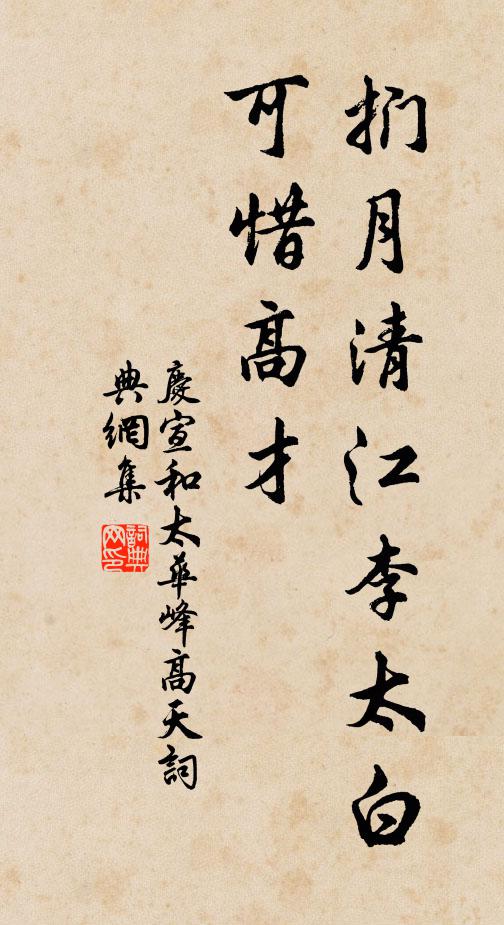 捫月清江李太白
可惜高才
慶宣和太華峰高天詞
典網集
詞典
网印